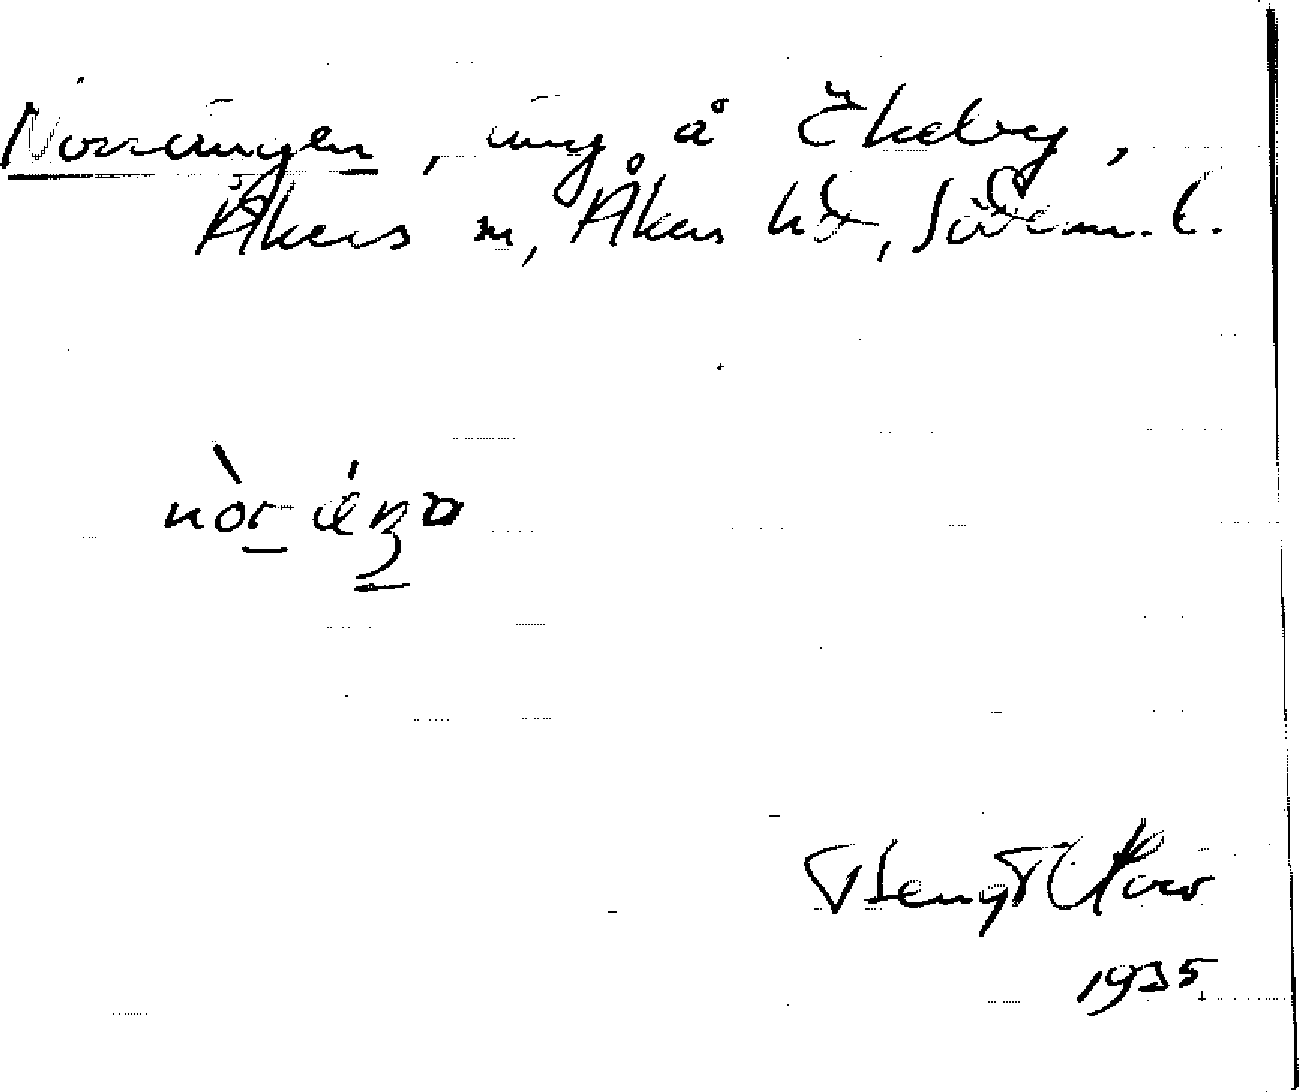 Norrängen, äng å Ekeby,
Åkers sn, Åkers hd, Söderm. l.
nòr-ä́ŋa
Bengt
1935